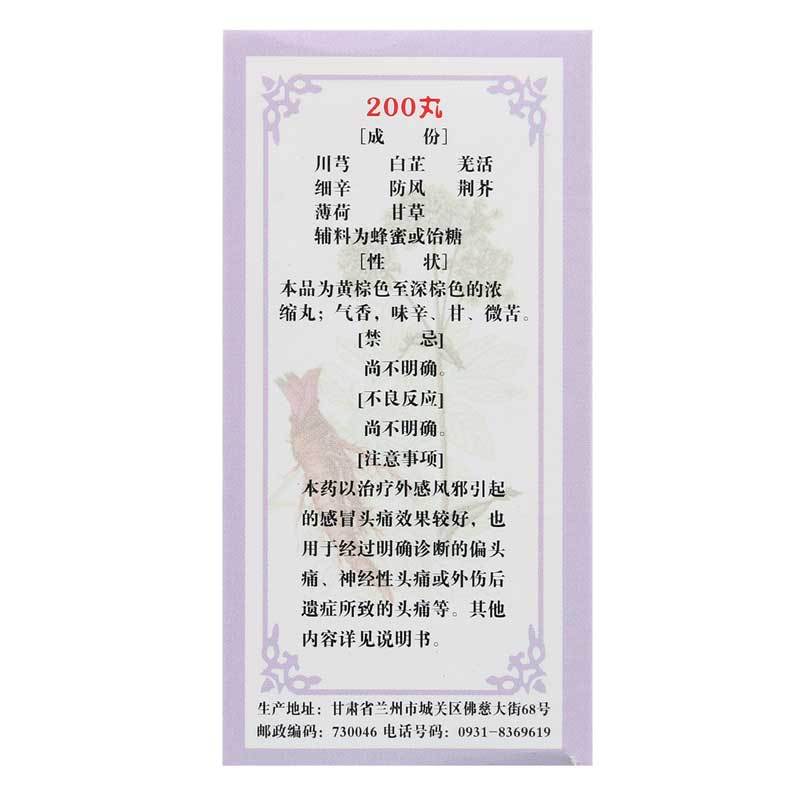 200丸
[成 份]
川芎 白芷 羌活
细辛 防风 荆芥
薄荷 甘草
辅料为蜂蜜或饴糖
[性 状]
本品为黄棕色至深棕色的浓
缩丸；气香，味辛、甘、微苦。
[禁 忌]
尚不明确。
[不良反应]
尚不明确。
[注意事项]
本药以治疗外感风邪引起
的感冒头痛效果较好，也
用于经过明确诊断的偏头
痛、神经性头痛或外伤后
遗症所致的头痛等。其他
内容详见说明书。
生产地址：甘肃省兰州市城关区佛慈大街68号
邮政编码：730046 电话号码：0931-8369619